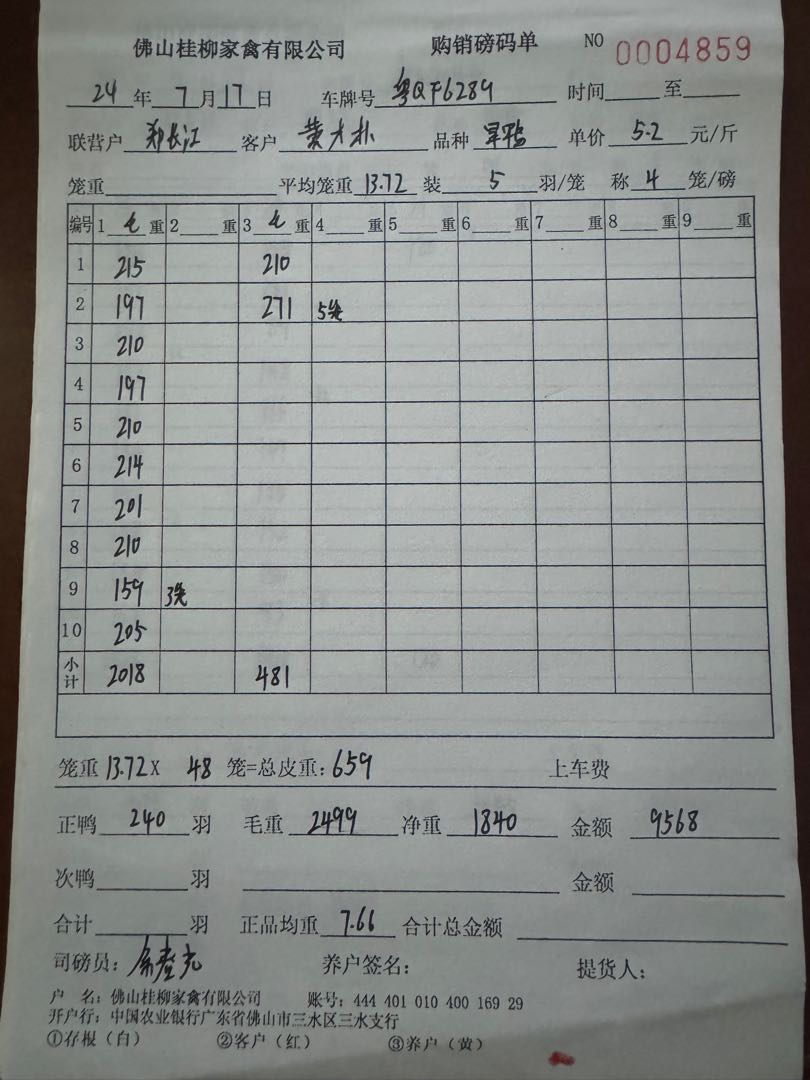 佛山桂柳家禽有限公司 购销磅码单 NO 0004859
24年7月17日 车牌号 粤QF6289 时间 至
联营户 郑长江 客户 黄大朴 品种 旱鸭 单价 5.2 元/斤
笼重 平均笼重 13.72 装 5 羽/笼 称 4 笼/磅
编号 1 毛 重 2 重 3 毛 重 4 重 5 重 6 重 7 重 8 重 9 重
1 215 210
2 197 271 5笼
3 210
4 197
5 210
6 214
7 201
8 210
9 159 3笼
10 205
小计 2018 481
笼重 13.72X 48 笼=总皮重:659 上车费
正鸭 240 羽 毛重 2499 净重 1840 金额 9568
次鸭 羽 金额
合计 羽 正品均重 7.66 合计总金额
司磅员: 养户签名: 提货人:
户 名: 佛山桂柳家禽有限公司 账号: 444 401 010 400 169 29
开户行: 中国农业银行广东省佛山市三水区三水支行
①存根(白) ②客户(红) ③养户(黄)